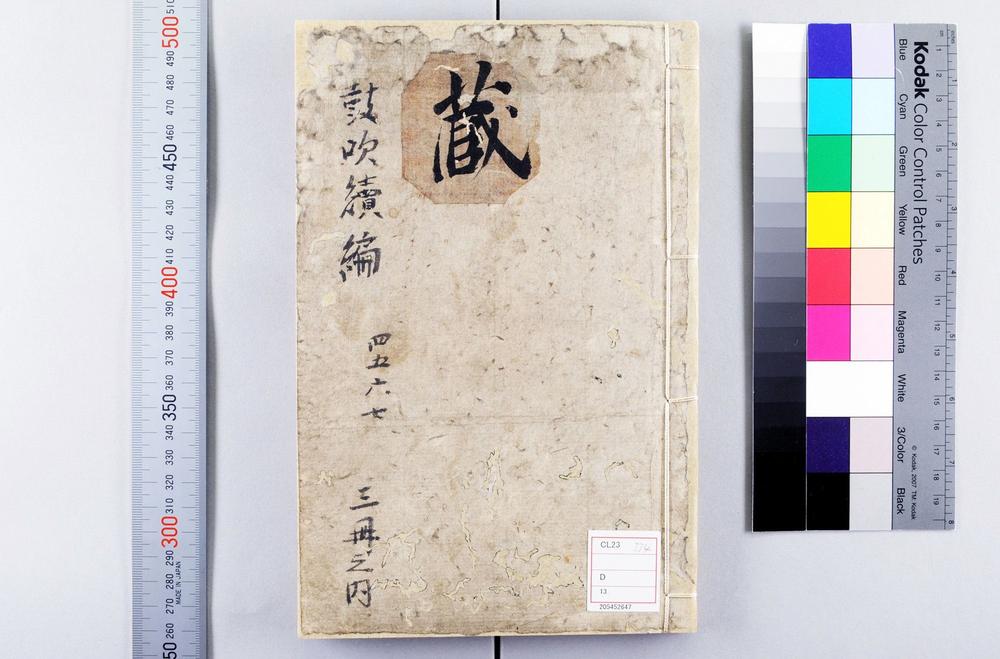 蔵
鼓吹續編
四五六七
三冊之内
CL23
D
13
205452647
510
500
490
480
470
460
450
440
430
420
410
400
390
380
370
360
350
340
330
320
310
300
290
280
270
260
50
MADE IN JAPAN
Kodak Color Control Patches
Blue
Cyan
Green
Yellow
Red
Magenta
White
3/Color
Black
© Kodak, 2007 TM: Kodak
cm 1 2 3 4 5 6 7 8 9 10 11 12 13 14 15 16 17 18 19
inches 1 2 3 4 5 6 7 8